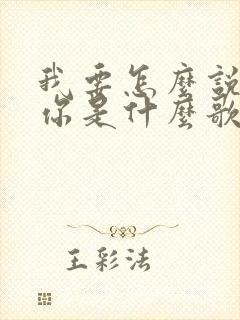 我要怎麼說
你是什麼歌
王彩法